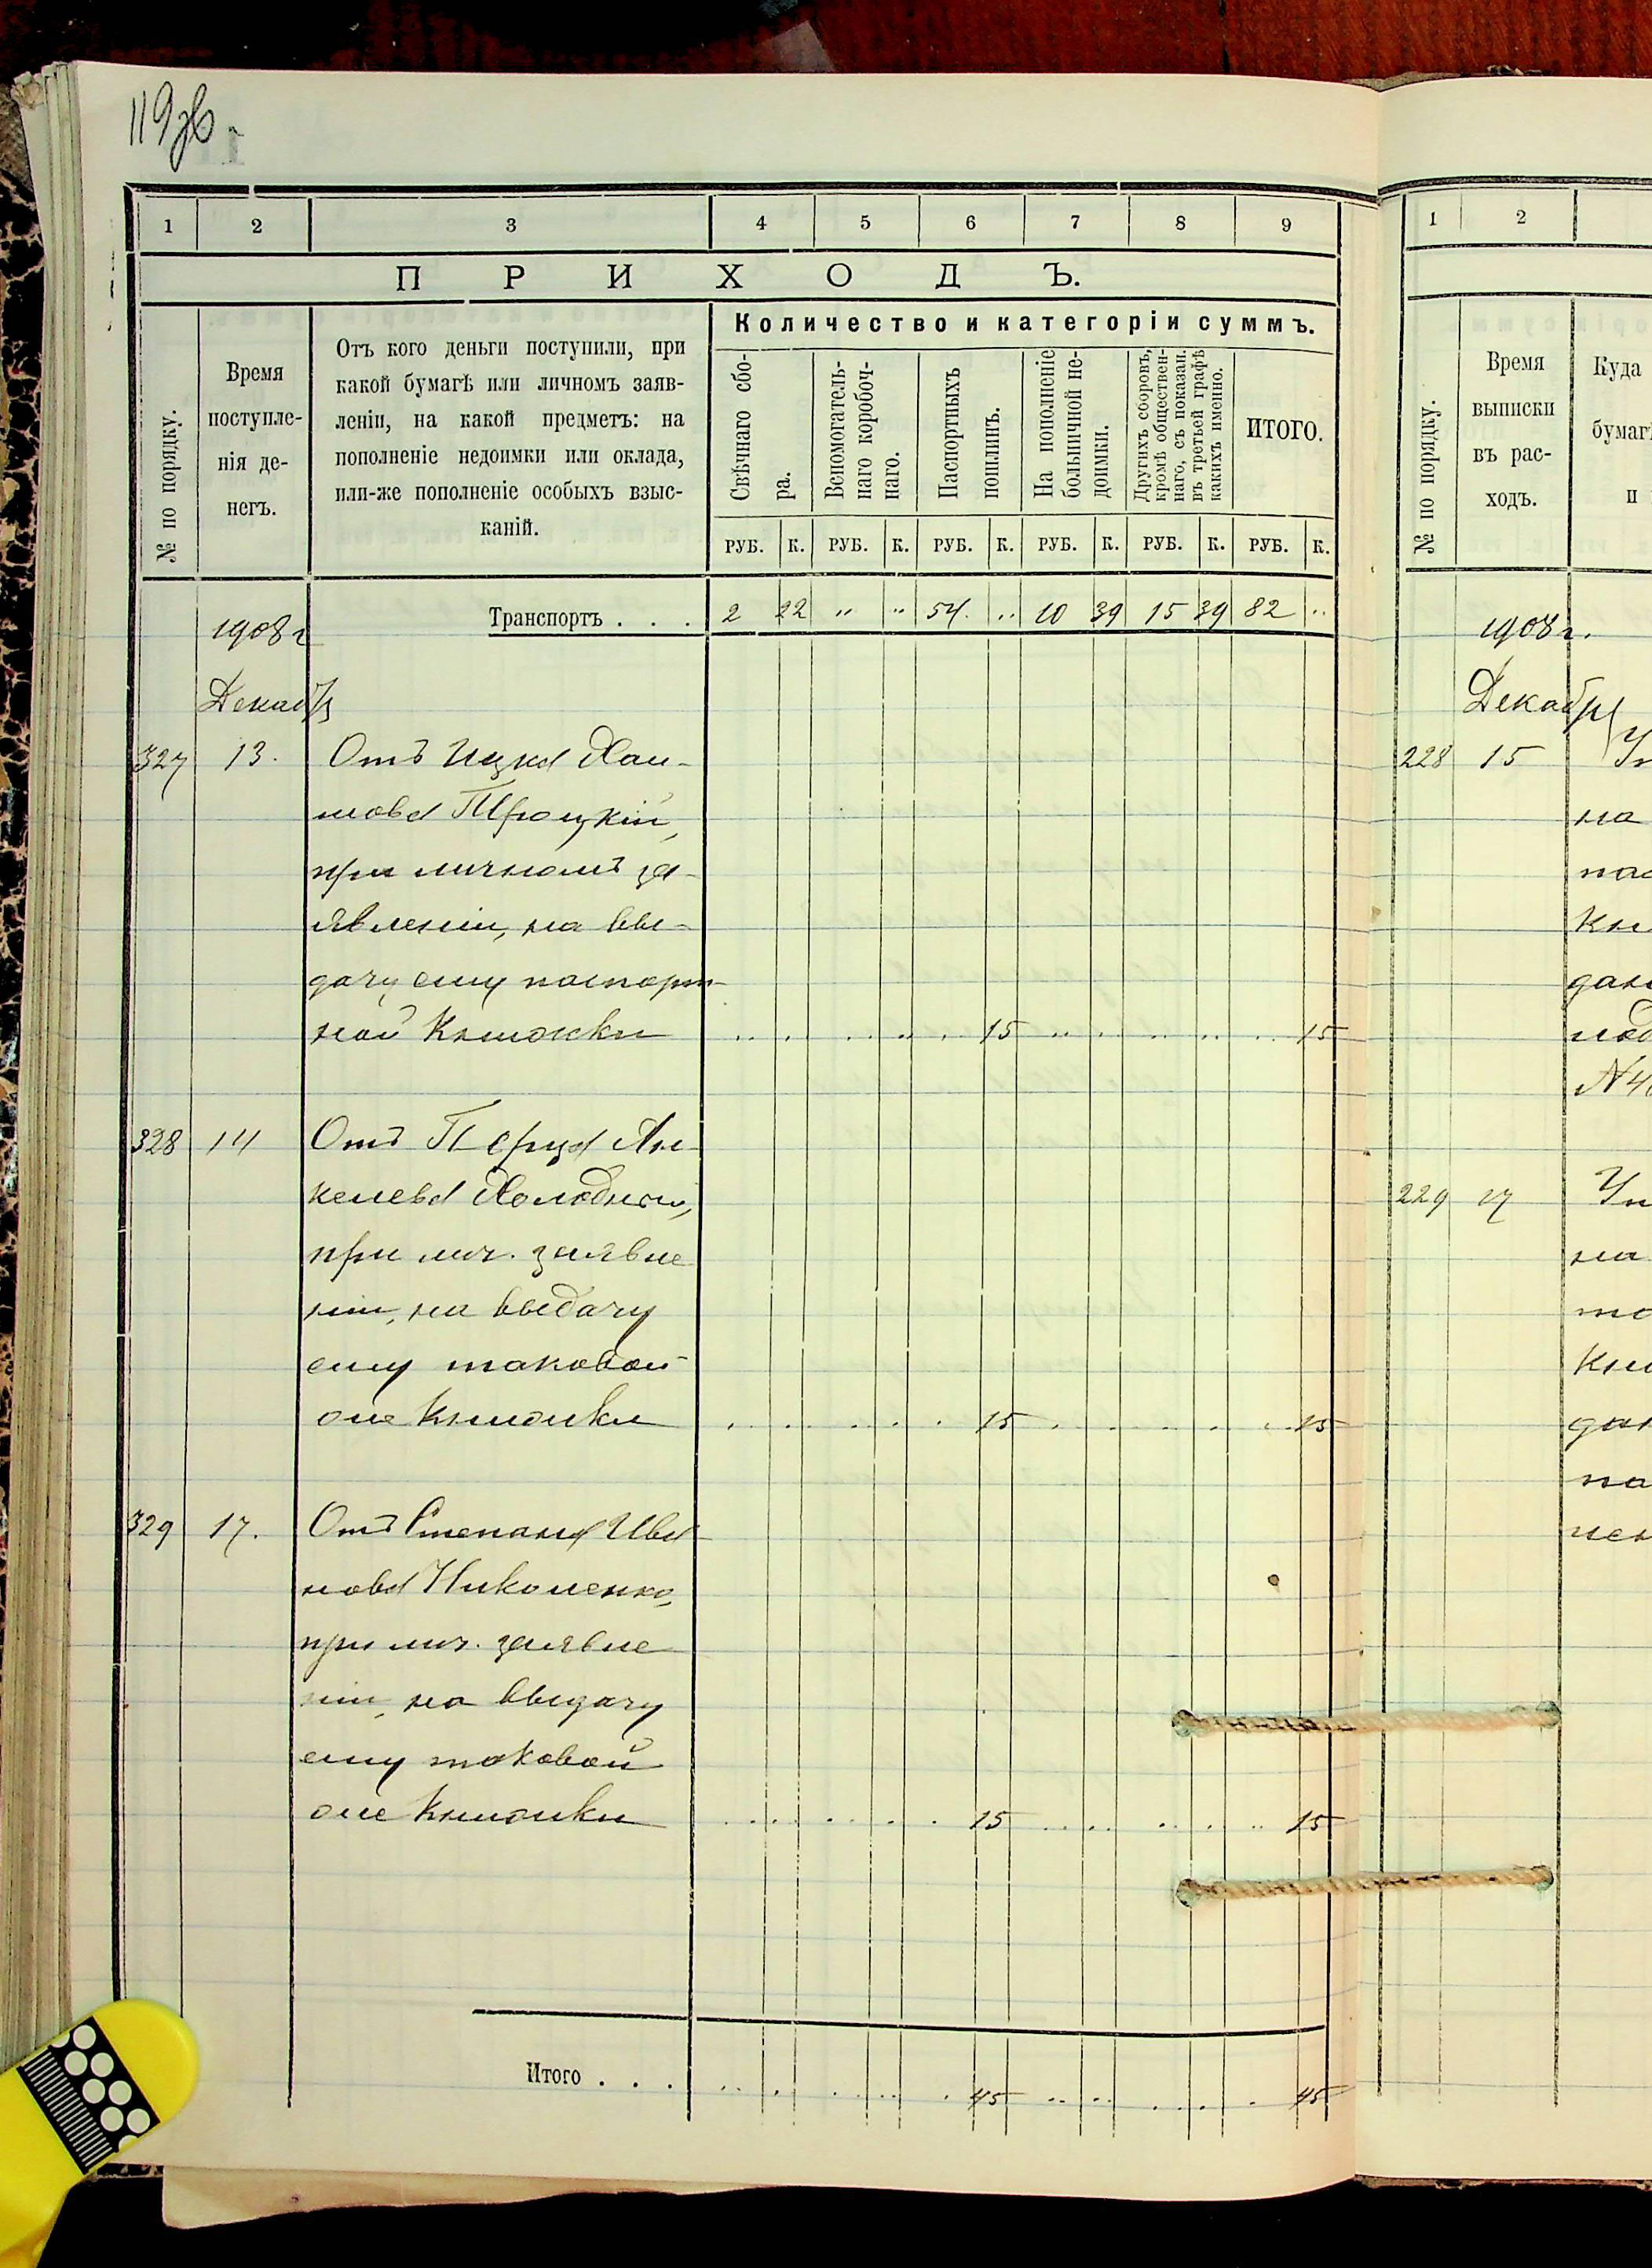 119об.
1 2 3 4 5 6 7 8 9
ПРИХОДЪ.
№ по порядку.
Время
поступле-
нія де-
негъ.
Отъ кого деньги поступили, при
какой бумагѣ или личномъ заяв-
леніи, на какой предметъ: на
пополненіе недоимки или оклада,
или-же пополненіе особыхъ взыс-
каній.
Количество и категоріи суммъ.
Свѣчнаго сбо-
ра.
Вспомогатель-
наго коробоч-
наго.
Паспортныхъ
пошлинъ.
На пополненіе
больничной не-
доимки.
Другихъ сборовъ,
кромѣ обществен-
наго, съ показан.
въ третьей графѣ
какихъ именно.
ИТОГО.
РУБ. К. РУБ. К. РУБ. К. РУБ. К. РУБ. К. РУБ. К.
Транспортъ . . . 2 22 " " 54. " 10 39 15 39 82 "
1908 г
Декабр
327 13. Отъ Ицка Хаи-
мова Троцкій,
при личномъ за-
явленіи, на вы-
дачу ему паспорт-
ной Книжки 15 15
328 14 Отъ Перца Ян-
келева Холодной,
при лич. заявле
ніи, на выдачу
ему таковой
же Книжки 15 15
329 17. Отъ Степана Ива
нова Николенко,
при лич. заявле
ніи, на выдачу
ему таковой
же Книжки 15 15
Итого . . . 45 45
1 2
№ по порядку.
Время
выписки
въ рас-
ходъ.
Куда
бумаг
и
1908 г.
Декабря
228 15
на
дан
под
229 17
на
Кни
дан